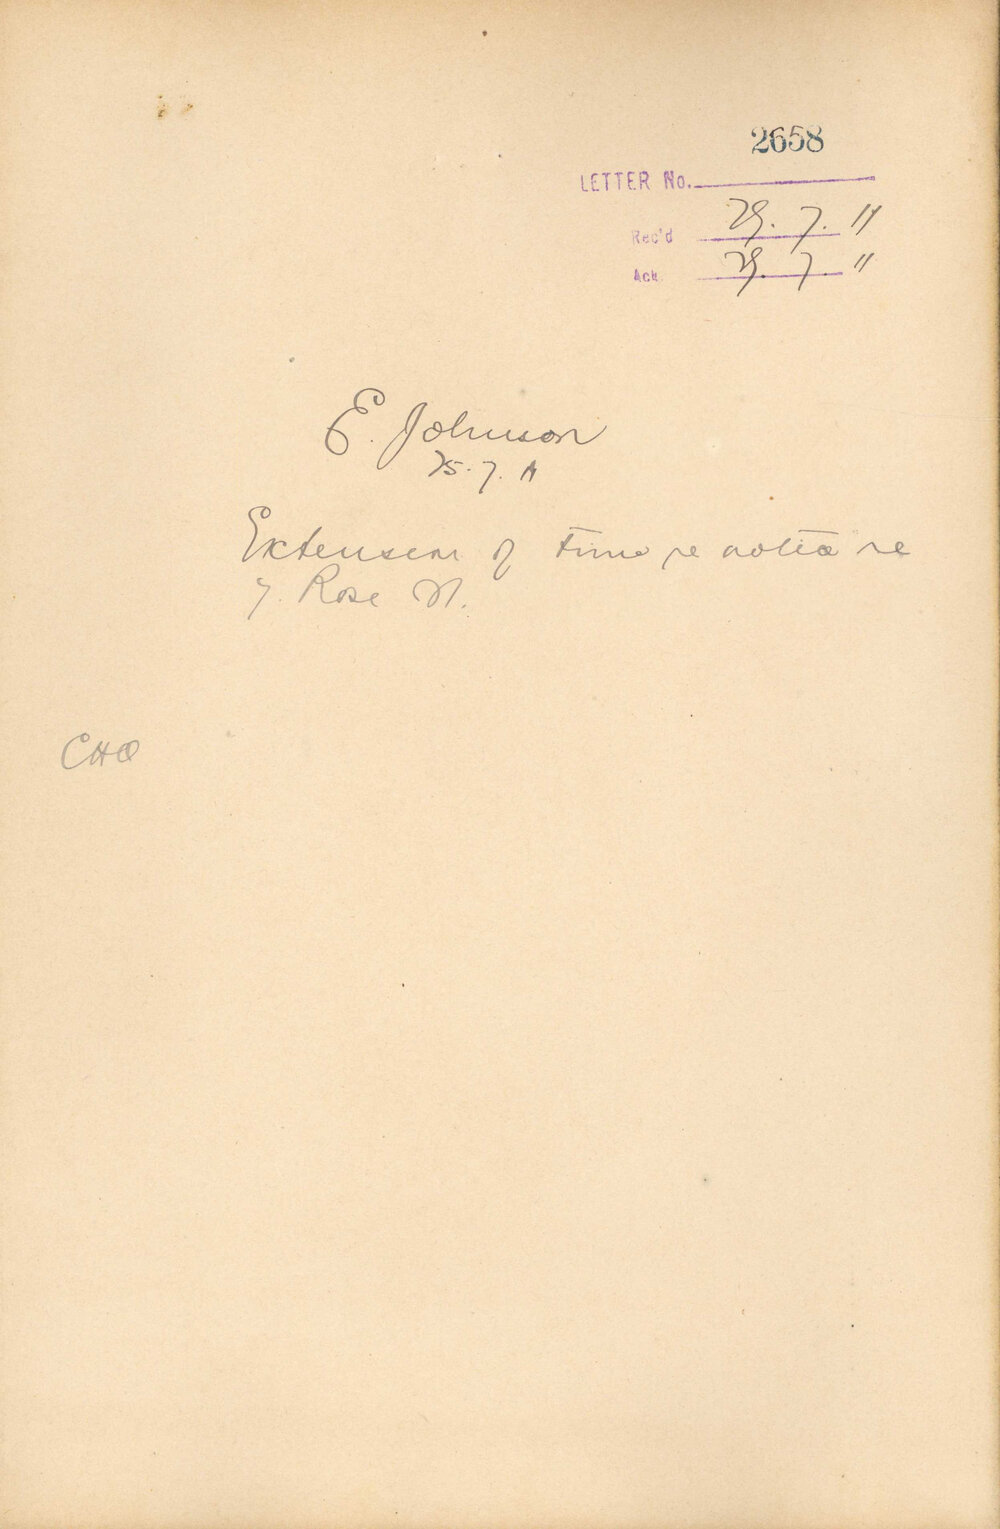 2658
LETTER No.
Rec'd 29. 7. 11
Ack. 29. 7. 11
E. Johnson
25. 7. 11
Extension of time re notice re
7. Rose St.
CHO